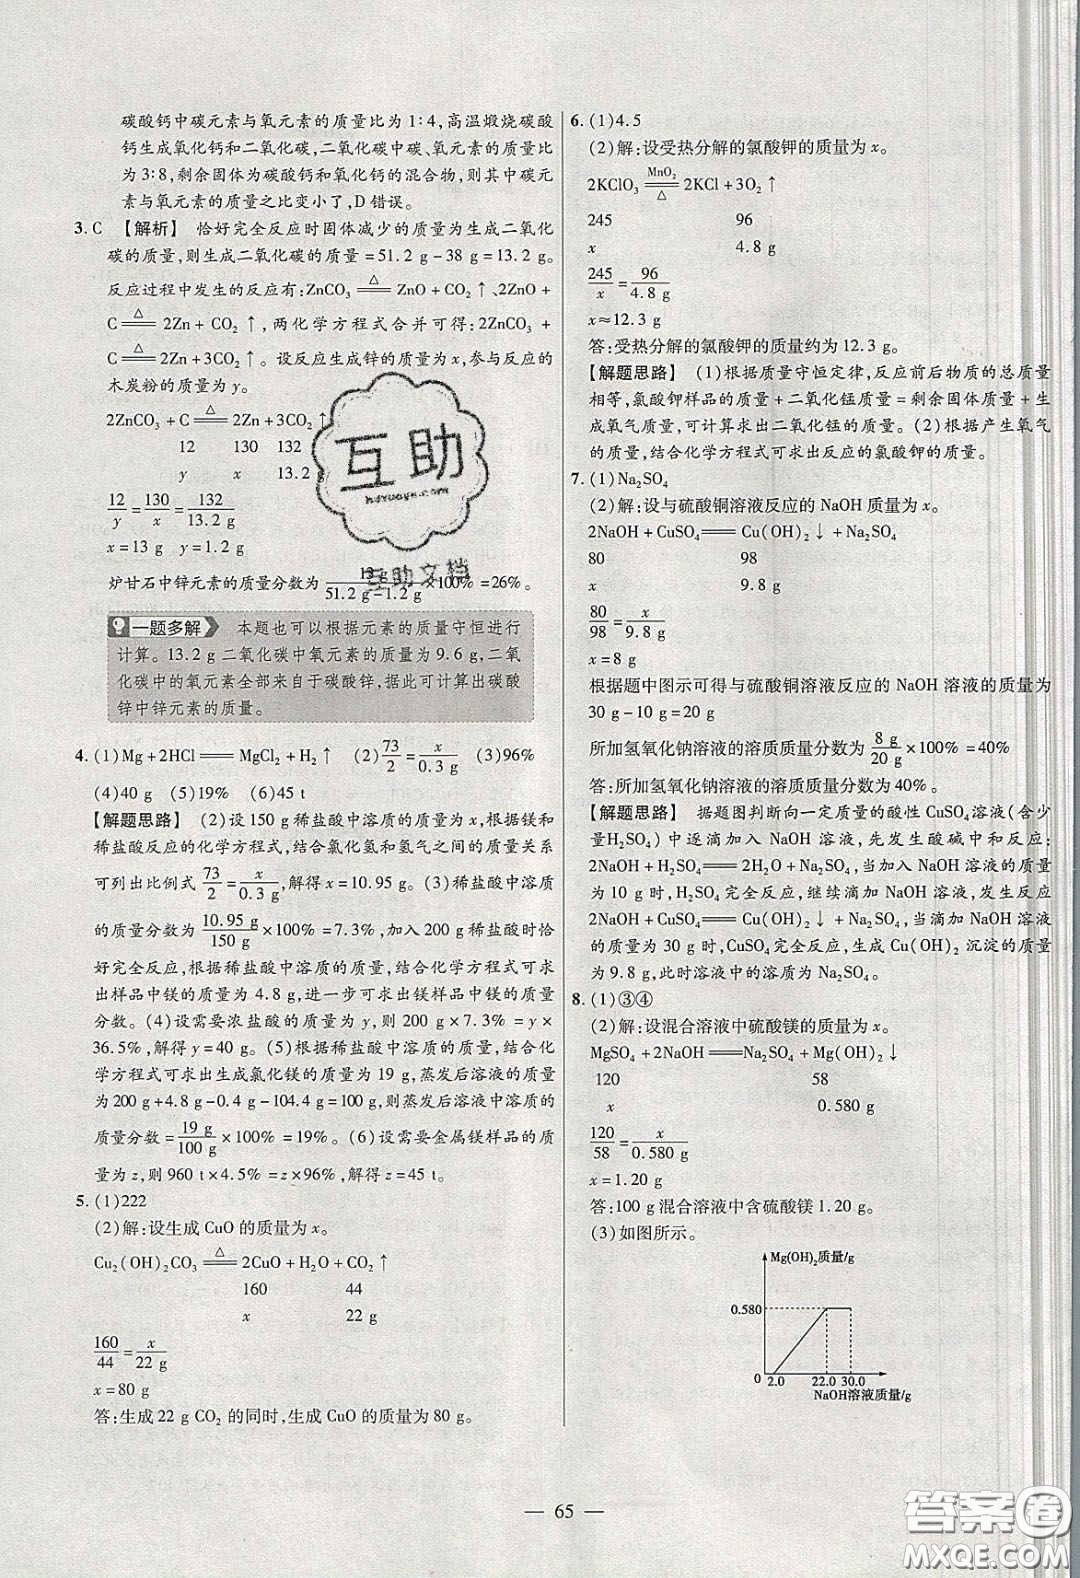 碳酸钙中碳元素与氧元素的质量比为 1∶4,高温煅烧碳酸
钙生成氧化钙和二氧化碳,二氧化碳中碳、氧元素的质量比
为 3∶8,剩余固体为碳酸钙和氧化钙的混合物,则其中碳元
素与氧元素的质量之比变小了,D 错误。
3. C 【解析】 恰好完全反应时固体减少的质量为生成二氧化
碳的质量,则生成二氧化碳的质量=51.2 g-38 g=13.2 g。
反应过程中发生的反应有:ZnCO₃ ==△== ZnO+CO₂↑、2ZnO+
C ==△== 2Zn+CO₂↑,两化学方程式合并可得:2ZnCO₃+
C ==△== 2Zn+3CO₂↑。设反应生成锌的质量为 x,参与反应的
木炭粉的质量为 y。
2ZnCO₃+C ==△== 2Zn+3CO₂↑
12 130 132
y x 13.2 g
12/y=130/x=132/13.2 g
x=13 g y=1.2 g
炉甘石中锌元素的质量分数为 13 g/(51.2 g-1.2 g)×100%=26%。
一题多解 本题也可以根据元素的质量守恒进行
计算。13.2 g 二氧化碳中氧元素的质量为 9.6 g,二氧
化碳中的氧元素全部来自于碳酸锌,据此可计算出碳酸
锌中锌元素的质量。
4. (1)Mg+2HCl == MgCl₂+H₂↑ (2)73/2=x/0.3 g (3)96%
(4)40 g (5)19% (6)45 t
【解题思路】 (2)设 150 g 稀盐酸中溶质的质量为 x,根据镁和
稀盐酸反应的化学方程式,结合氯化氢和氢气之间的质量关系
可列出比例式 73/2=x/0.3 g,解得 x=10.95 g。(3)稀盐酸中溶质
的质量分数为 10.95 g/150 g×100%=7.3%,加入 200 g 稀盐酸时恰
好完全反应,根据稀盐酸中溶质的质量,结合化学方程式可求
出样品中镁的质量为 4.8 g,进一步可求出镁样品中镁的质量
分数。(4)设需要浓盐酸的质量为 y,则 200 g×7.3%=y×
36.5%,解得 y=40 g。(5)根据稀盐酸中溶质的质量,结合化
学方程式可求出生成氯化镁的质量为 19 g,蒸发后溶液的质
量为 200 g+4.8 g-0.4 g-104.4 g=100 g,则蒸发后溶液中溶质的
质量分数=19 g/100 g×100%=19%。(6)设需要金属镁样品的质
量为 z,则 960 t×4.5%=z×96%,解得 z=45 t。
5. (1)222
(2)解:设生成 CuO 的质量为 x。
Cu₂(OH)₂CO₃ ==△== 2CuO+H₂O+CO₂↑
160 44
x 22 g
160/44=x/22 g
x=80 g
答:生成 22 g CO₂ 的同时,生成 CuO 的质量为 80 g。
6. (1)4.5
(2)解:设受热分解的氯酸钾的质量为 x。
2KClO₃ ==MnO₂/△== 2KCl+3O₂↑
245 96
x 4.8 g
245/x=96/4.8 g
x≈12.3 g
答:受热分解的氯酸钾的质量约为 12.3 g。
【解题思路】 (1)根据质量守恒定律,反应前后物质的总质量
相等,氯酸钾样品的质量+二氧化锰质量=剩余固体质量+生
成氧气质量,可计算求出二氧化锰的质量。(2)根据产生氧气
的质量,结合化学方程式可求出反应的氯酸钾的质量。
7. (1)Na₂SO₄
(2)解:设与硫酸铜溶液反应的 NaOH 质量为 x。
2NaOH+CuSO₄ == Cu(OH)₂↓+Na₂SO₄
80 98
x 9.8 g
80/98=x/9.8 g
x=8 g
根据题中图示可得与硫酸铜溶液反应的 NaOH 溶液的质量为
30 g-10 g=20 g
所加氢氧化钠溶液的溶质质量分数为 8 g/20 g×100%=40%
答:所加氢氧化钠溶液的溶质质量分数为 40%。
【解题思路】 据题图判断向一定质量的酸性 CuSO₄ 溶液(含少
量 H₂SO₄)中逐滴加入 NaOH 溶液,先发生酸碱中和反应:
2NaOH+H₂SO₄ == 2H₂O+Na₂SO₄,当加入 NaOH 溶液的质量
为 10 g 时,H₂SO₄ 完全反应,继续滴加 NaOH 溶液,发生反应
2NaOH+CuSO₄ == Cu(OH)₂↓+Na₂SO₄,当滴加 NaOH 溶液
的质量为 30 g 时,CuSO₄ 完全反应,生成 Cu(OH)₂ 沉淀的质量
为 9.8 g,此时溶液中的溶质为 Na₂SO₄。
8. (1)③④
(2)解:设混合溶液中硫酸镁的质量为 x。
MgSO₄+2NaOH == Na₂SO₄+Mg(OH)₂↓
120 58
x 0.580 g
120/58=x/0.580 g
x=1.20 g
答:100 g 混合溶液中含硫酸镁 1.20 g。
(3)如图所示。
Mg(OH)₂质量/g
0.580
0 2.0 22.0 30.0
NaOH溶液质量/g
— 65 —
互助
hdzuoye.com
互助文档
答案卷
MXQE.COM